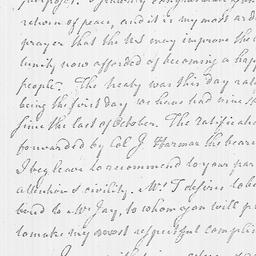 return of peace, and it is my most ard
prayer that the U.S. may improve the
tunity now afforded of becoming a hap
people. The treaty was this day rat
being the first day we have had nine st
since the last of October. The ratificatio
forwarded by Col J. Harmar the bearer
I beg leave to recommend to your par
attention & civility. Mr T desires to be
bend to Mr Jay, to whom you will p
to make my most respectful complim